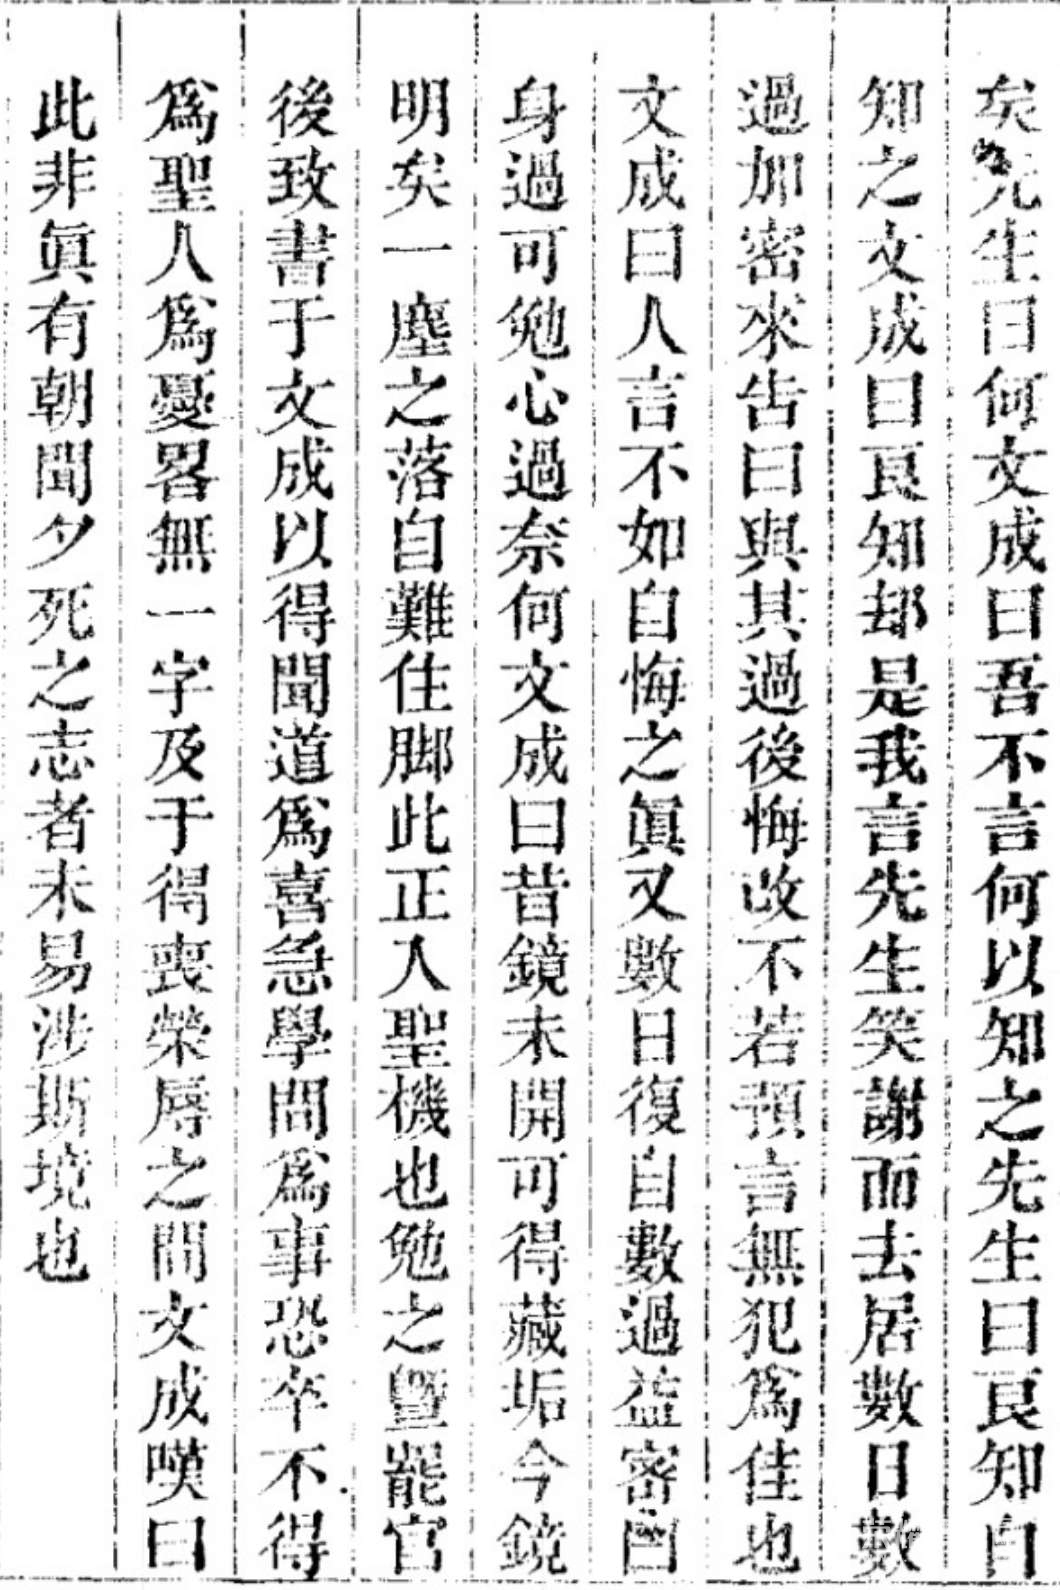 矣先生曰何文成曰吾不言何以知之先生曰良知自
知之文成曰良知却是我言先生笑謝而去居數日數
過加密來告曰與其過後悔改不若預言無犯爲佳也
文成曰人言不如自悔之眞又數日復自數過益密曰
身過可勉心過奈何文成曰昔鏡未開可得藏垢今鏡
明矣一塵之落自難住脚此正入聖機也勉之曁罷官
後致書于文成以得聞道爲喜急學問爲事恐卒不得
爲聖人爲憂畧無一字及于得喪榮辱之間文成嘆曰
此非眞有朝聞夕死之志者未易涉斯境也